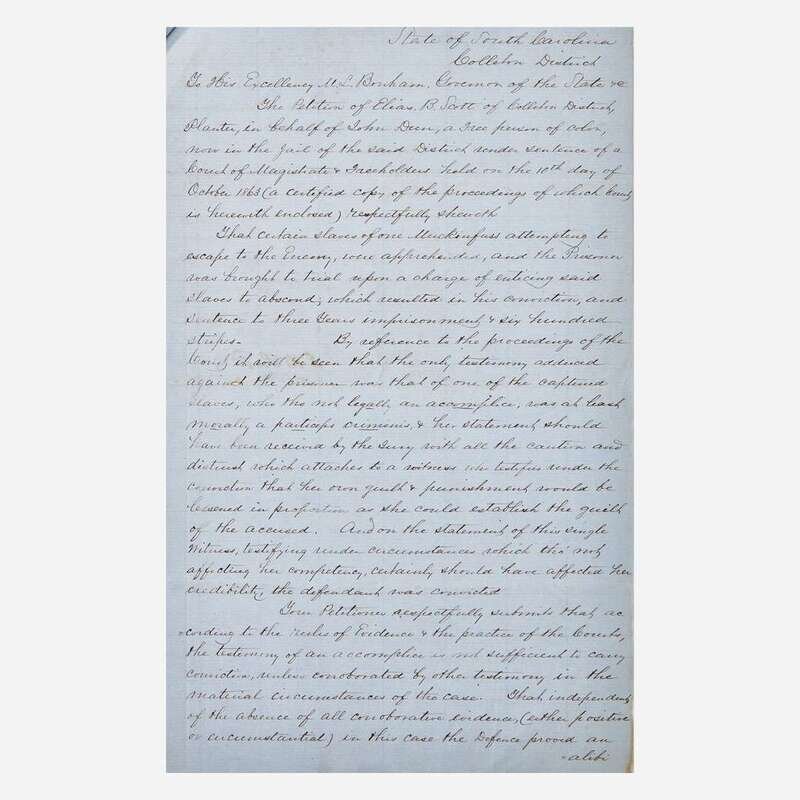 State of South Carolina
Colleton District
To His Excellency M. L. Bonham, Governor of the State &c
The Petition of Elias B. Scott of Colleton District,
Planter, in behalf of John Dunn, a free person of color,
now in the Jail of the said District under sentence of a
Court of Magistrate & Freeholders held on the 10th day of
October 1863 (a certified copy of the proceedings of which Court
is herewith enclosed) respectfully sheweth
That certain slaves of one Muckenfuss attempting to
escape to the Enemy, were apprehended, and the Prisoner
was brought to trial upon a charge of enticing said
slaves to abscond; which resulted in his conviction, and
sentence to three Years imprisonment & six hundred
stripes. By reference to the proceedings of the
Court it will be seen that the only testimony adduced
against the prisoner was that of one of the captured
slaves, who tho not legally an accomplice, was at least
morally a particeps criminis, & her statement should
have been received by the Jury with all the caution and
distrust which attaches to a witness who testifies under the
conviction that her own guilt & punishment would be
lessened in proportion as she could establish the guilt
of the accused. And on the statement of this single
Witness, testifying under circumstances which tho' not
affecting her competency, certainly should have affected her
credibility, the defendant was convicted
Your Petitioner respectfully submits that ac
-cording to the rules of Evidence & the practice of the Courts,
the testimony of an accomplice is not sufficient to carry
conviction, unless corroborated by other testimony in the
material circumstances of the case. That independent
of the absence of all corroborative evidence, (either positive
or circumstantial) in this case the Defence proved an
-alibi